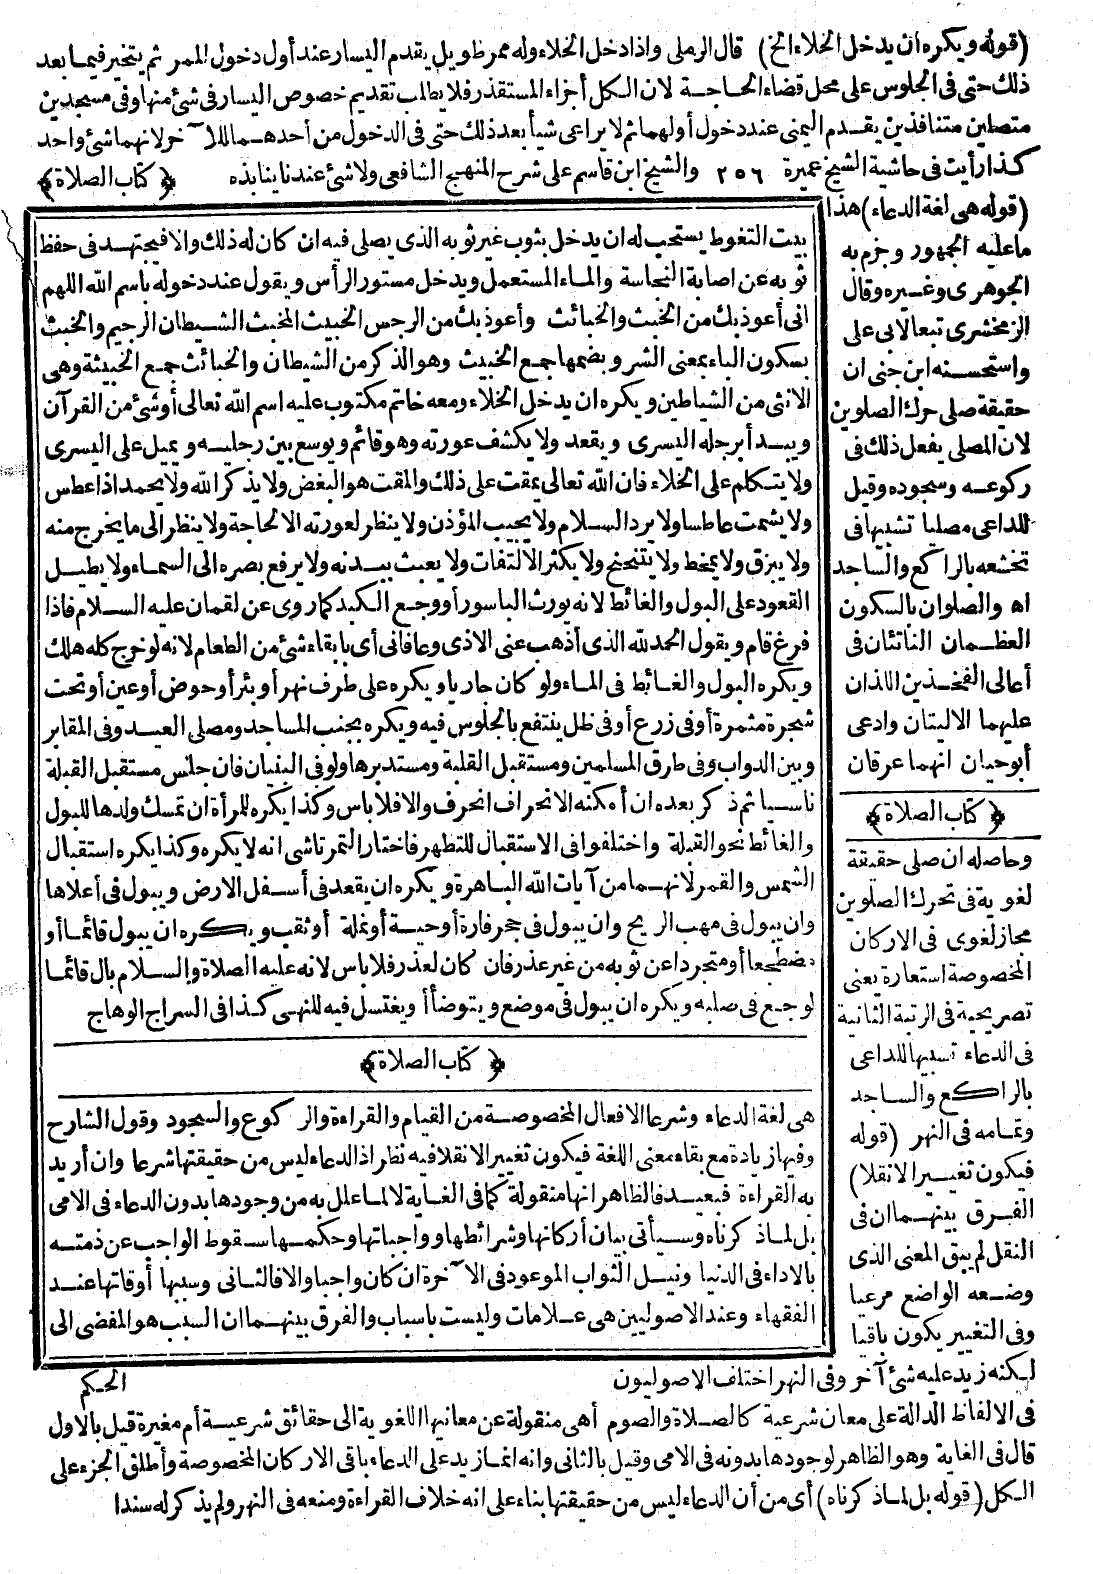 (قوله ويكره أن يدخل الخلاء الخ) قال الرملي واذا دخل الخلاء وله ممر طويل يقدم اليسار عند أول دخول الممر ثم يتخير فيما بعد
ذلك حتى فى الجلوس على محل قضاء الحاجة لان الكل أجزاء المستقذر فلا يطلب تقديم خصوص اليسار فى شئ منها وفى مسجدين
متصلين متنافذين يقدم اليمنى عند دخول أولهما ثم لا يراعى شيأ بعد ذلك حتى فى الدخول من أحدهما للا خر لانهما شئ واحد
كذا رأيت فى حاشية الشيخ عميرة ٢٥٦ والشيخ ابن قاسم على شرح المنهج الشافعى ولا شئ عندنا ينابذه ﴿كتاب الصلاة﴾
(قوله هى لغة الدعاء) هذا
ما عليه الجمهور وجزم به
الجوهرى وغيره وقال
الزمخشرى تبعا لابى على
واستحسنه ابن جنى ان
حقيقة صلى حرك الصلوين
لان المصلى يفعل ذلك فى
ركوعه وسجوده وقيل
للداعى مصليا تشبيها فى
تخشعه بالراكع والساجد
اه والصلوان بالسكون
العظمان الناتئان فى
أعالى الفخذين اللذان
عليهما الاليتان وادعى
أبوحيان انهما عرقان
﴿كتاب الصلاة﴾
وحاصله ان صلى حقيقة
لغوية فى تحرك الصلوين
مجاز لغوى فى الاركان
المخصوصة استعارة يعنى
تصريحية فى الرتبة الثانية
فى الدعاء تشبيها للداعى
بالراكع والساجد
وتمامه فى النهر (قوله
فيكون تغييرا لانقلا)
الفرق بينهما ان فى
النقل لم يبق المعنى الذى
وضعه الواضع مرعيا
وفى التغيير يكون باقيا
بيت التغوط يستحب له ان يدخل بثوب غير ثوبه الذى يصلى فيه ان كان له ذلك والا فيجتهد فى حفظ
ثوبه عن اصابة النجاسة والماء المستعمل ويدخل مستور الرأس ويقول عند دخوله باسم الله اللهم
انى أعوذ بك من الخبث والخبائث وأعوذ بك من الرجس الخبيث المخبث الشيطان الرجيم والخبث
بسكون الباء بمعنى الشر وبضمها جمع الخبيث وهو الذكر من الشيطان والخبائث جمع الخبيثة وهى
الانثى من الشياطين ويكره ان يدخل الخلاء ومعه خاتم مكتوب عليه اسم الله تعالى أو شئ من القرآن
ويبدأ برجله اليسرى ويقعد ولا يكشف عورته وهو قائم ويوسع بين رجليه ويميل على اليسرى
ولا يتكلم على الخلاء فان الله تعالى يمقت على ذلك والمقت هو البغض ولا يذكر الله ولا يحمد اذا عطس
ولا يشمت عاطسا ولا يرد السلام ولا يجيب المؤذن ولا ينظر لعورته الا لحاجة ولا ينظر الى ما يخرج منه
ولا يبزق ولا يمخط ولا يتنحنح ولا يكثر الالتفات ولا يعبث ببدنه ولا يرفع بصره الى السماء ولا يطيل
القعود على البول والغائط لانه يورث الباسور أو وجع الكبد كما روى عن لقمان عليه السلام فاذا
فرغ قام ويقول الحمد لله الذى أذهب عنى الاذى وعافانى أى بابقاء شئ من الطعام لانه لو خرج كله هلك
ويكره البول والغائط فى الماء ولو كان جاريا ويكره على طرف نهر أو بئر أو حوض أو عين أو تحت
شجرة مثمرة أو فى زرع أو فى ظل ينتفع بالجلوس فيه ويكره بجنب المساجد ومصلى العيد وفى المقابر
وبين الدواب وفى طرق المسلمين ومستقبل القبلة ومستدبرها ولو فى البنيان فان جلس مستقبل القبلة
ناسيا ثم ذكر بعده ان أمكنه الانحراف انحرف والا فلا باس وكذا يكره للمرأة ان تمسك ولدها للبول
والغائط نحو القبلة واختلفوا فى الاستقبال للتطهر فاختار التمرتاشى انه لا يكره وكذا يكره استقبال
الشمس والقمر لانهما من آيات الله الباهرة ويكره ان يقعد فى أسفل الارض ويبول فى أعلاها
وان يبول فى مهب الريح وان يبول فى حجر فارة أو حية أو نملة أو ثقب ويكره ان يبول قائما أو
مضطجعا أو متجردا عن ثوبه من غير عذر فان كان لعذر فلا باس لانه عليه الصلاة والسلام بال قائما
لوجع فى صلبه ويكره ان يبول فى موضع ويتوضأ أو يغتسل فيه للنهى كذا فى السراج الوهاج
﴿كتاب الصلاة﴾
هى لغة الدعاء وشرعا الافعال المخصوصة من القيام والقراءة والركوع والسجود وقول الشارح
وفيها زيادة مع بقاء معنى اللغة فيكون تغييرا لانقلا فيه نظر اذ الدعاء ليس من حقيقتها شرعا وان أريد
به القراءة فبعيد فالظاهر انها منقولة كما فى الغاية لا لما علل به من وجودها بدون الدعاء فى الامى
بل لما ذكرناه وسيأتى بيان أركانها وشرائطها وواجباتها وحكمها سقوط الواجب عن ذمته
بالاداء فى الدنيا ونيل الثواب الموعود فى الا خرة ان كان واجبا والا فالثانى وسببها أوقاتها عند
الفقهاء وعند الاصوليين هى علامات وليست باسباب والفرق بينهما ان السبب هو المفضى الى
لكنه زيد عليه شئ آخر وفى النهر اختلف الاصوليون الحكم
فى الالفاظ الدالة على معان شرعية كالصلاة والصوم أهى منقولة عن معانيها اللغوية الى حقائق شرعية أم مغيرة قيل بالاول
قال فى الغاية وهو الظاهر لوجودها بدونه فى الامى وقيل بالثانى وانه انما زيد على الدعاء باقى الاركان المخصوصة وأطلق الجزء على
الكل (قوله بل لما ذكرناه) أى من أن الدعاء ليس من حقيقتها بناء على انه خلاف القراءة ومنعه فى النهر ولم يذكر له سندا